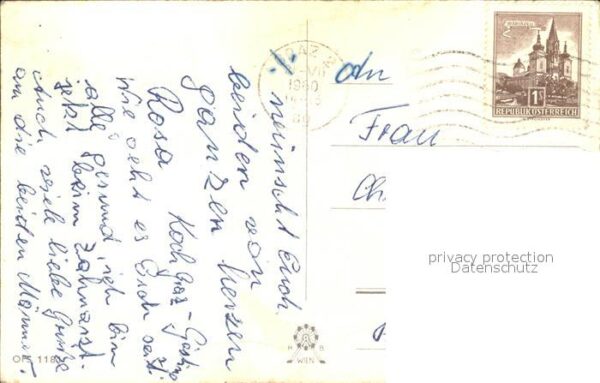 ./.
wünscht Euch
beiden von
ganzen Herzen
Rosa Koch Graz-
Wie geht es Euch seit
alle gesund, ich bin
jetzt beim Zahnarzt.
Auch viele liebe Grüße
an die beiden Männer.
An
Frau
Ch
GRAZ
1960
MARIAZELL
1S
REPUBLIK ÖSTERREICH
privacy protection
Datenschutz
H B
WIEN